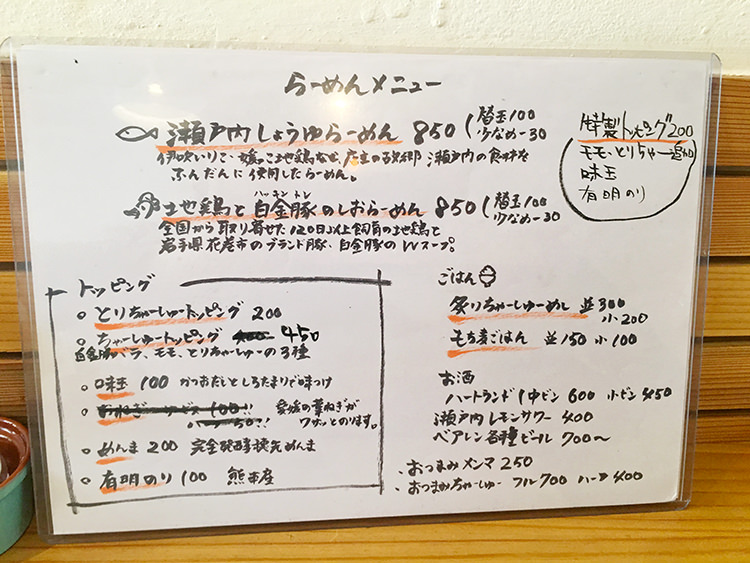 らーめんメニュー
瀬戸内しょうゆらーめん 850 (替玉100 少なめ-30
伊吹いりこ・媛っこ地鶏など、店主の故郷 瀬戸内の食材を
ふんだんに使用したらーめん。
地鶏と白金豚のしおらーめん 850 (替玉100 少なめ-30
ハッキントン
全国から取り寄せた120日以上飼育の地鶏と
岩手県花巻市のブランド豚、白金豚のWスープ。
特製トッピング200
モモ、とりちゃー追加
味玉
有明のり
トッピング
○ とりちゃーしゅートッピング 200
○ ちゃーしゅートッピング 450
白金豚バラ、モモ、とりちゃーしゅーの3種
○ 味玉 100 かつおだしとしろたまりで味つけ
○ 愛媛の葉ねぎが
ワサッとのります。
○ めんま 200 完全発酵穂先めんま
○ 有明のり 100 熊本産
ごはん
炙りちゃーしゅーめし 並300
小200
もち麦ごはん 並150 小100
お酒
ハートランド 中ビン 600 小ビン 450
瀬戸内レモンサワー 400
ベアレン各種ビール 700〜
・おつまみメンマ 250
・おつまみちゃーしゅー フル700 ハーフ400